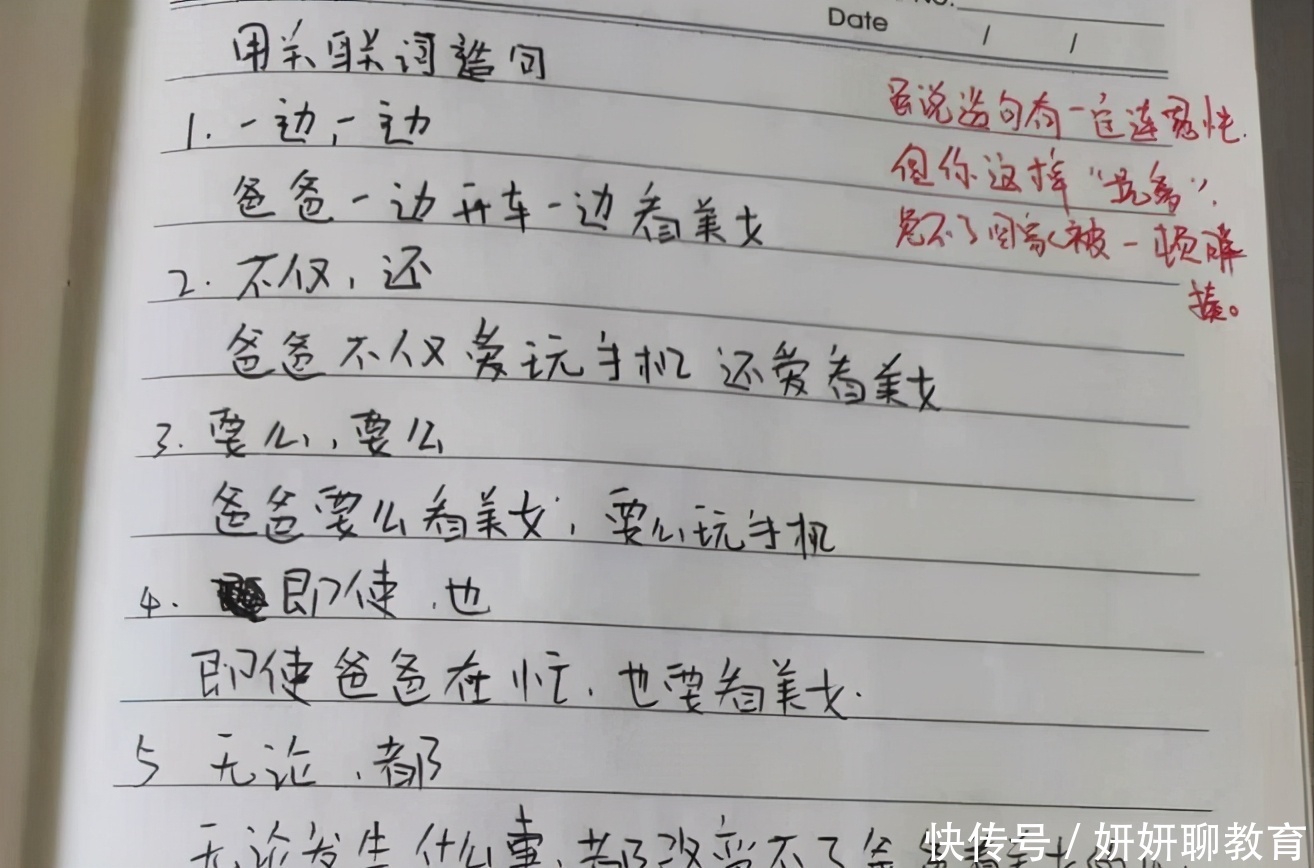 No.
Date / /
用关联词造句
1. 一边,一边
爸爸一边开车一边看美女
2. 不仅,还
爸爸不仅爱玩手机还爱看美女
3. 要么,要么
爸爸要么看美女,要么玩手机
4. 即使,也
即使爸爸在忙,也要看美女.
5 无论,都
无论发生什么事,都改变不了爸爸
虽说造句有一定连贯性.
但你这样“坑爹”,
免不了回家被一顿胖
揍。
快传号 / 妍妍聊教育